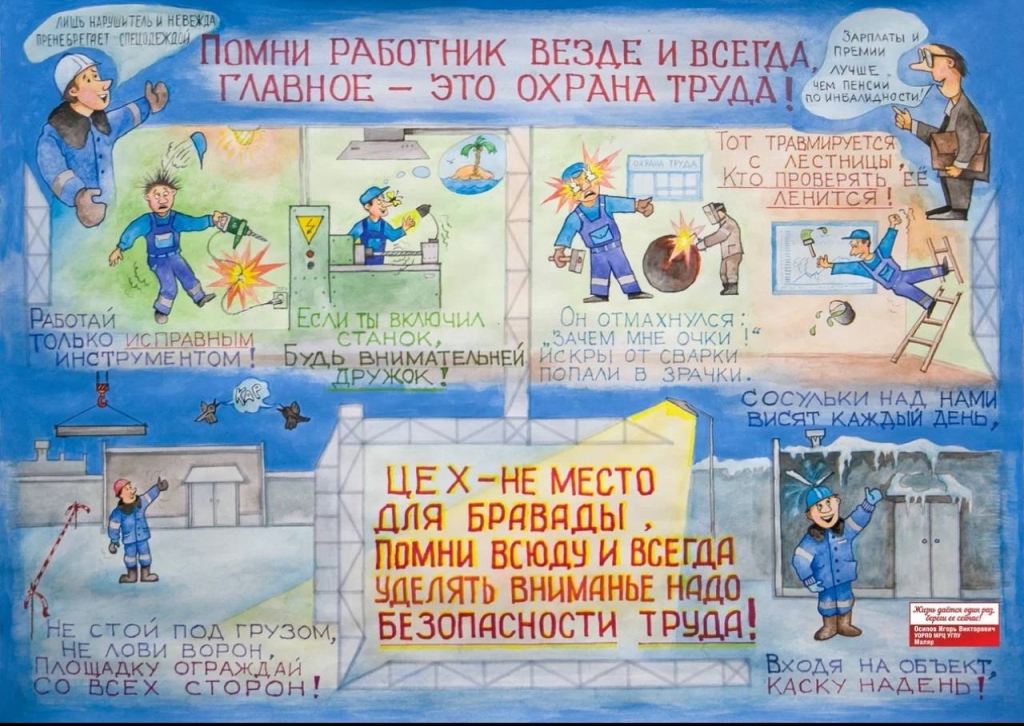 ЛИШЬ НАРУШИТЕЛЬ И НЕВЕЖДА
ПРЕНЕБРЕГАЕТ СПЕЦОДЕЖДОЙ
ПОМНИ РАБОТНИК ВЕЗДЕ И ВСЕГДА,
ГЛАВНОЕ – ЭТО ОХРАНА ТРУДА!
ЗАРПЛАТЫ И
ПРЕМИИ
ЛУЧШЕ,
ЧЕМ ПЕНСИИ
ПО ИНВАЛИДНОСТИ!
РАБОТАЙ
ТОЛЬКО ИСПРАВНЫМ
ИНСТРУМЕНТОМ!
ЕСЛИ ТЫ ВКЛЮЧИЛ
СТАНОК,
БУДЬ ВНИМАТЕЛЬНЕЙ
ДРУЖОК!
ОХРАНА ТРУДА
ОН ОТМАХНУЛСЯ:
„ЗАЧЕМ МНЕ ОЧКИ!"
ИСКРЫ ОТ СВАРКИ
ПОПАЛИ В ЗРАЧКИ.
ТОТ ТРАВМИРУЕТСЯ
С ЛЕСТНИЦЫ,
КТО ПРОВЕРЯТЬ ЕЁ
ЛЕНИТСЯ!
КАР
НЕ СТОЙ ПОД ГРУЗОМ,
НЕ ЛОВИ ВОРОН,
ПЛОЩАДКУ ОГРАЖДАЙ
СО ВСЕХ СТОРОН!
ЦЕХ – НЕ МЕСТО
ДЛЯ БРАВАДЫ,
ПОМНИ ВСЮДУ И ВСЕГДА
УДЕЛЯТЬ ВНИМАНЬЕ НАДО
БЕЗОПАСНОСТИ ТРУДА!
СОСУЛЬКИ НАД, НАМИ
ВИСЯТ КАЖДЫЙ ДЕНЬ,
ВХОДЯ НА ОБЪЕКТ,
КАСКУ НАДЕНЬ!
Жизнь даётся один раз,
береги ее сейчас!
Осипов Игорь Викторович
УОРПО МРЦ УГПУ
Маляр